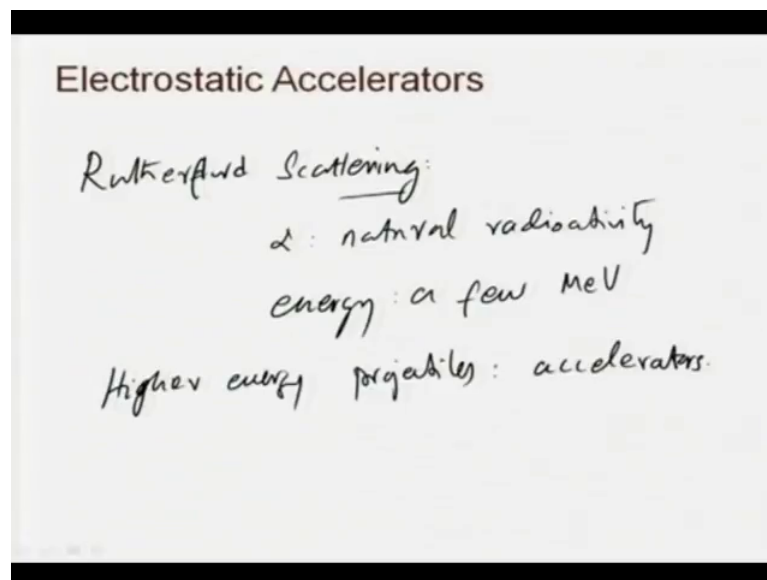 Electrostatic Accelerators
Rutherford Scattering:
α : natural radioativity
energy : a few MeV
Higher energy projatiles : accelerators.